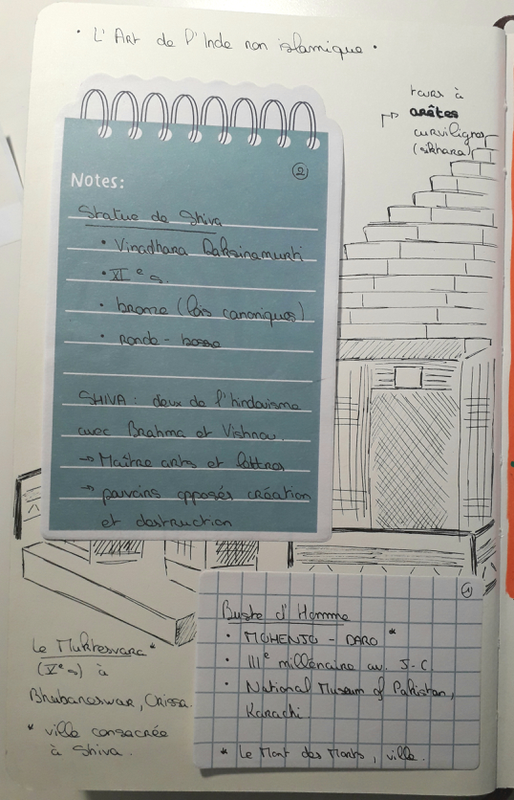 • L'Art de l'Inde non islamique •
tours à
arêtes
curvilignes
(sikhara)
②
Notes:
Statue de Shiva
• Vinadhara Daksinamurti
• XIe s.
• bronze (lois canoniques)
• ronde-bosse
SHIVA : dieux de l'hindouisme
avec Brahma et Vishnou.
→ Maître arts et lettres
→ pouvoirs opposés création
et destruction
①
Buste d'Homme
• MOHENJO-DARO *
• IIIe millénaire av. J-C.
• National Museum of Pakistan,
Karachi.
* Le Mont des Morts, ville.
Le Muktesvara *
(Xe s) à
Bhubaneswar, Orissa.
* ville consacrée
à Shiva.